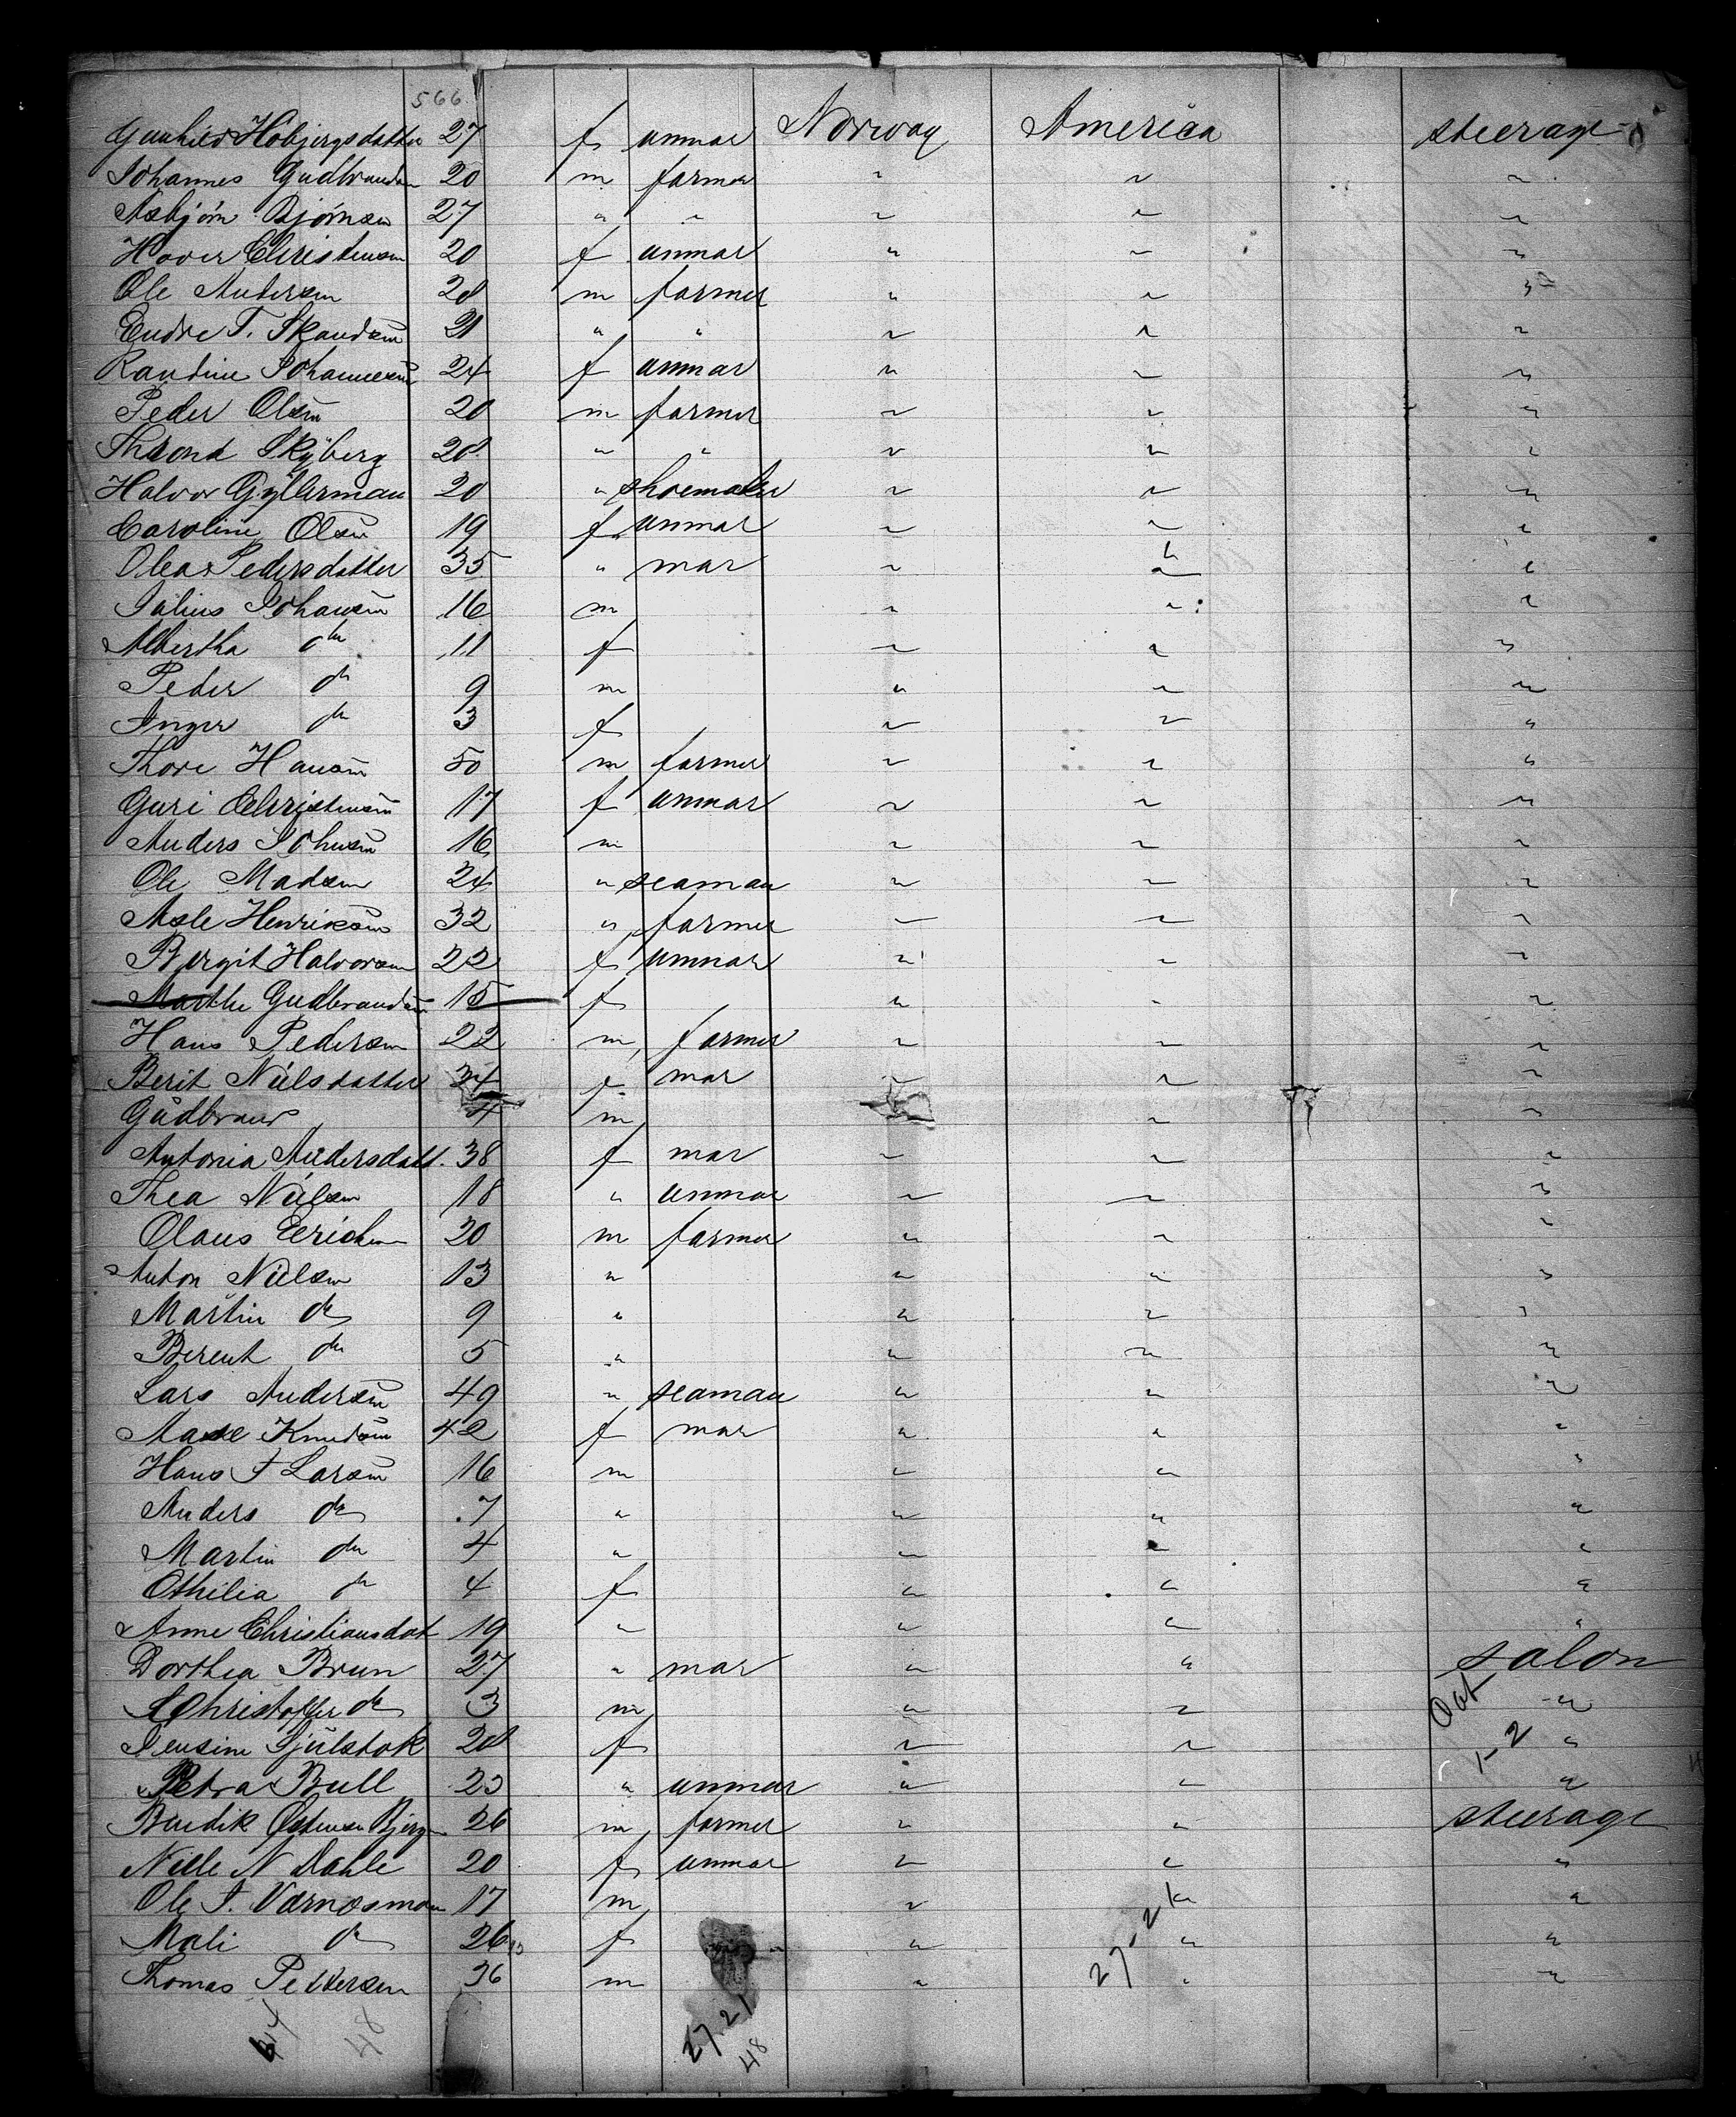 566
Gunhild Hobjergsdatter 27 f unmar Norway America steerage
Johannes Gudbrandsen 20 m farmer " " "
Asbjørn Bjørnsen 27 " " " " "
Christensen 20 f unmar " " "
Ole Andersen 28 m farmer " " "
Endre T. Skandsen 21 " " " " "
Randine Johannesen 24 f unmar " " "
Peder Olsen 20 m farmer " " "
Thrond Skÿberg 28 " " " " "
Halvor Gÿllerman 20 " shoemaker " " "
Caroline Olsen 19 f unmar " " "
Olea Pedersdatter 35 " mar " " "
Julius Johansen 16 m " " "
Albertha do 11 f " " "
Peder do 9 m " " "
Inger do 3 f " " "
Thore Hansen 50 m farmer " " "
Guri Christensen 17 f unmar " " "
Anders Johnsen 16 m " " "
Ole Madsen 24 " seaman " " "
Asle Henriksen 32 " farmer " " "
Bergit Halvorsen 22 f unmar " " "
Marthe Gudbrandsen 15 f " " "
Hans Pedersen 22 m farmer " " "
Berit Nielsdatter 34 f mar " " "
Gudbrand 4 m " "
Antonia Andersdatt. 38 f mar " " "
Thea Nielsen 18 " unmar " " "
Olaus Erichsen 20 m farmer " " "
Anton Nielsen 13 " " " "
Martin do 9 " " " "
Berent do 5 " " " "
Lars Andersen 49 " seaman " " "
Aase Knudsen 42 f mar " " "
Hans J Larsen 16 m " " "
Anders do 7 " " " "
Martin do 4 " " " "
Othilia do 4 f " " "
Anne Christiansdat 19 " " " "
Dorthea Brun 27 " mar " " salon
Christoffer do 3 m " " "
Jensine 28 f " " "
Petra Bull 23 " unmar " " "
Bendik Østensen 26 m farmer " " steerage
Nille N Dahle 20 f unmar " " "
Ole T. 17 m " " "
Mali do 26 f " " "
Thomas Pettersen 36 m " " "
1-2
27-2
27.21
48
48